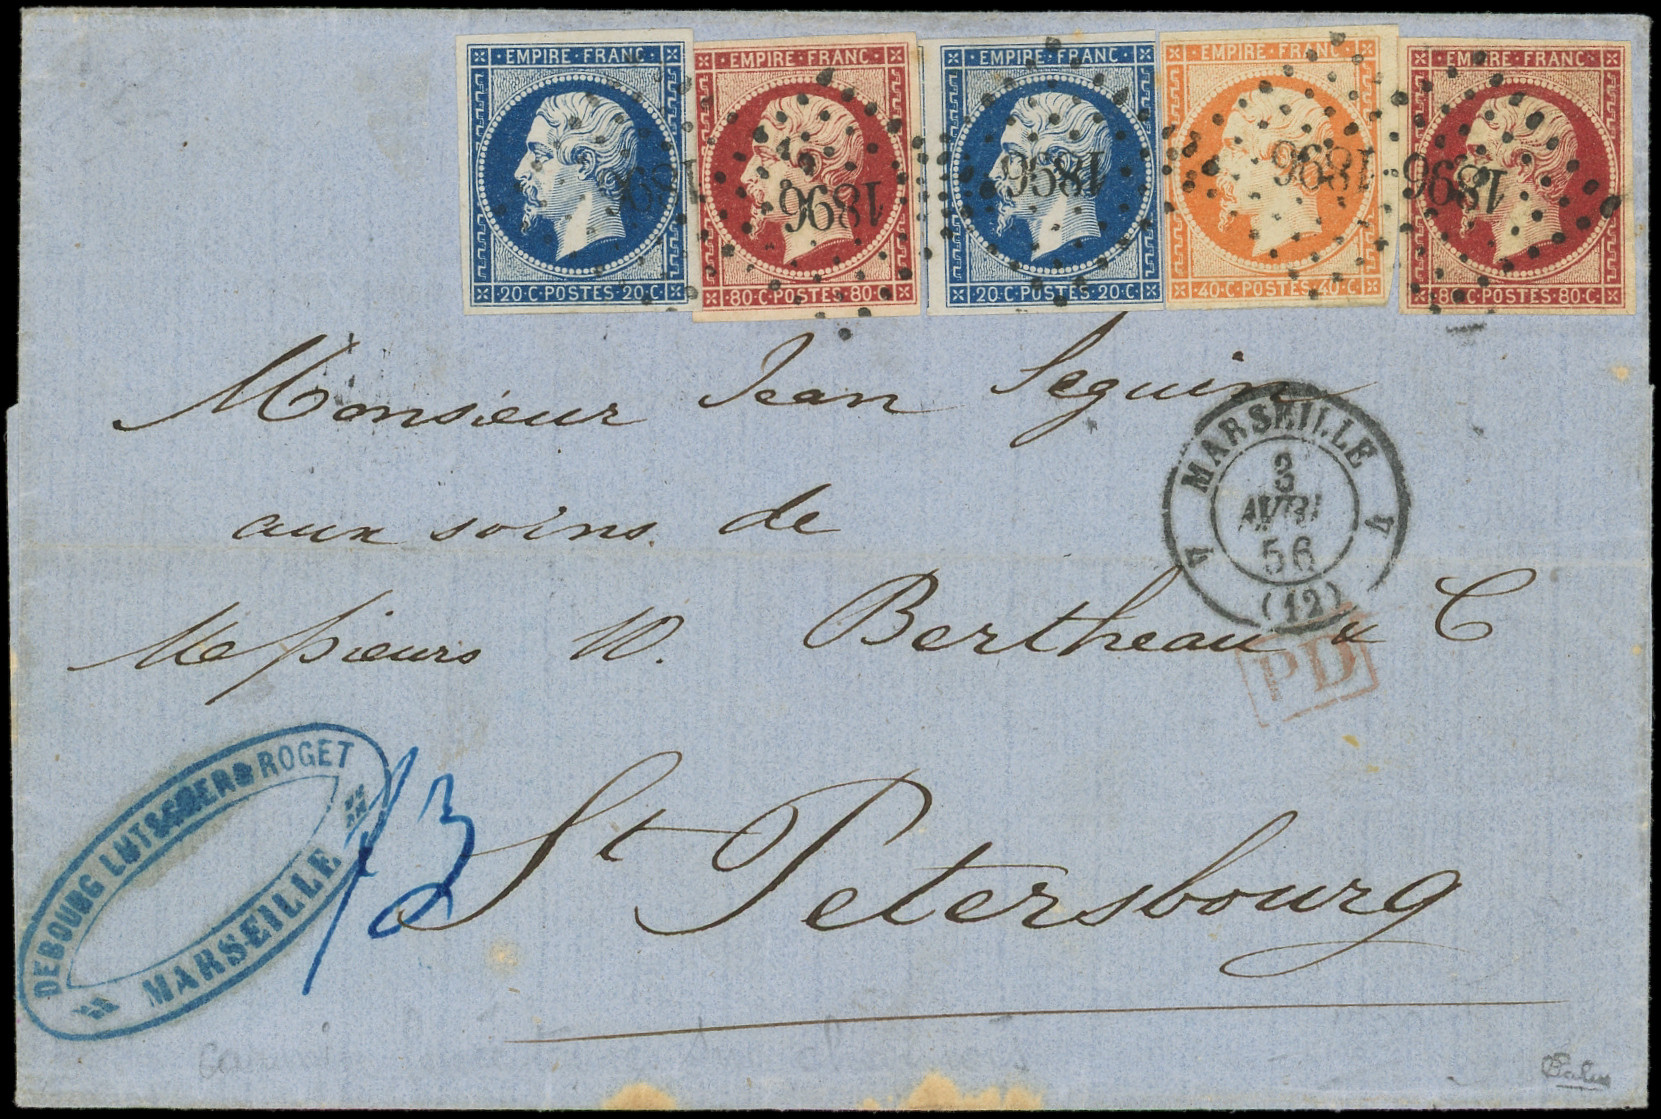 EMPIRE·FRANC· EMPIRE·FRANC· EMPIRE·FRANC· EMPIRE·FRANC· EMPIRE·FRANC·
1896 1896 1896 1896
20·C·POSTES·20·C· 80·C·POSTES·80·C· 20·C·POSTES·20·C· 40·C·POSTES·40·C· 80·C·POSTES·80·C·
Monsieur Jean Seguin
aux soins de
Messieurs W. Bertheau & C
St Petersbourg
MARSEILLE
3
AVRIL
56
(12)
PD
DEBOURG LUTSGBERG ROGET
MARSEILLE